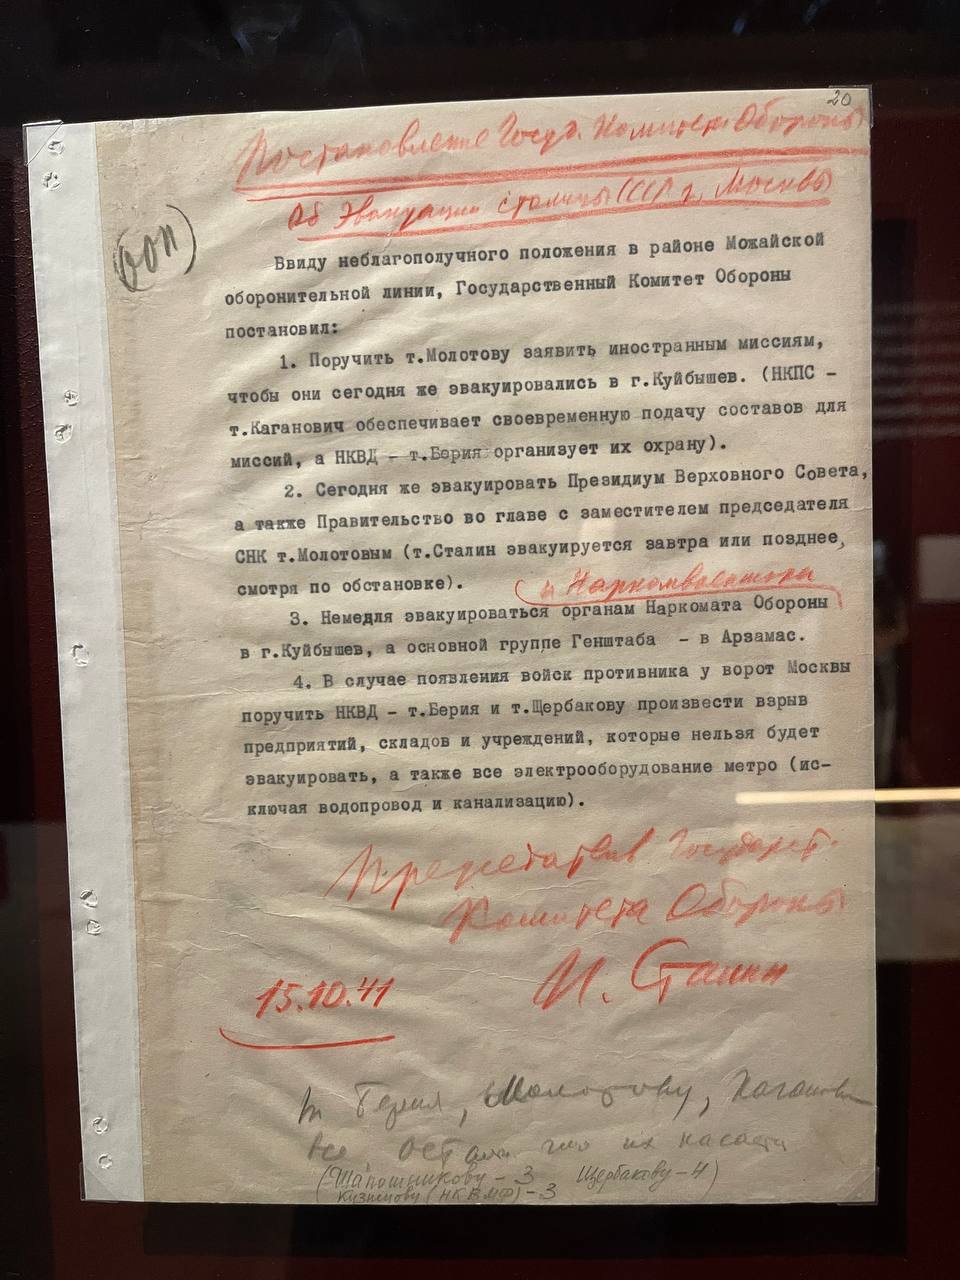 20
Постановление Госуд. Комитета Обороны
Об Эвакуации столицы СССР г. Москвы
Ввиду неблагополучного положения в районе Можайской
оборонительной линии, Государственный Комитет Обороны
постановил:
1. Поручить т.Молотову заявить иностранным миссиям,
чтобы они сегодня же эвакуировались в г.Куйбышев. (НКПС –
т.Каганович обеспечивает своевременную подачу составов для
миссий, а НКВД – т.Берия организует их охрану).
2. Сегодня же эвакуировать Президиум Верховного Совета,
а также Правительство во главе с заместителем председателя
СНК т.Молотовым (т.Сталин эвакуируется завтра или позднее,
смотря по обстановке).
и Наркомвоенмора
3. Немедля эвакуироваться органам Наркомата Обороны
в г.Куйбышев, а основной группе Генштаба – в Арзамас.
4. В случае появления войск противника у ворот Москвы
поручить НКВД – т.Берия и т.Щербакову произвести взрыв
предприятий, складов и учреждений, которые нельзя будет
эвакуировать, а также все электрооборудование метро (ис-
ключая водопровод и канализацию).
Председатель Государст.
Комитета Обороны
И. Сталин
15.10.41
Берия, Молотову, Каганович
все их касается
(Шапошникову – 3 Щербакову – 4)
Кузнецову (НКВМФ) – 3